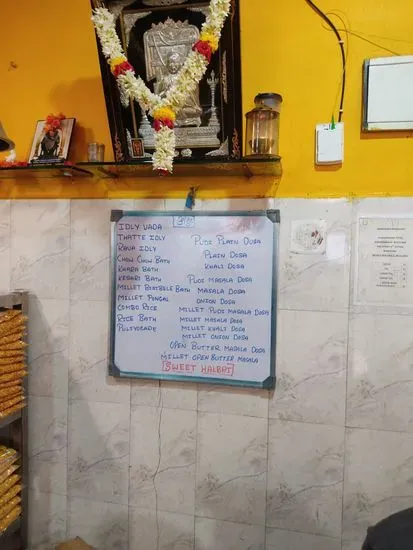 IDLY VADA
THATTE IDLY
RAVA IDLY
CHOW CHOW BATH
KHARA BATH
KESARI BATH
MILLET BISIBELE BATH
MILLET PONGAL
COMBO RICE
RICE BATH
PULIYOGARE
PUDI PLAIN DOSA
PLAIN DOSA
KHALI DOSA
PUDI MASALA DOSA
MASALA DOSA
ONION DOSA
MILLET PUDI MASALA DOSA
MILLET MASALA DOSA
MILLET KHALI DOSA
MILLET ONION DOSA
OPEN BUTTER MASALA DOSA
MILLET OPEN BUTTER MASALA
SWEET HALBAI